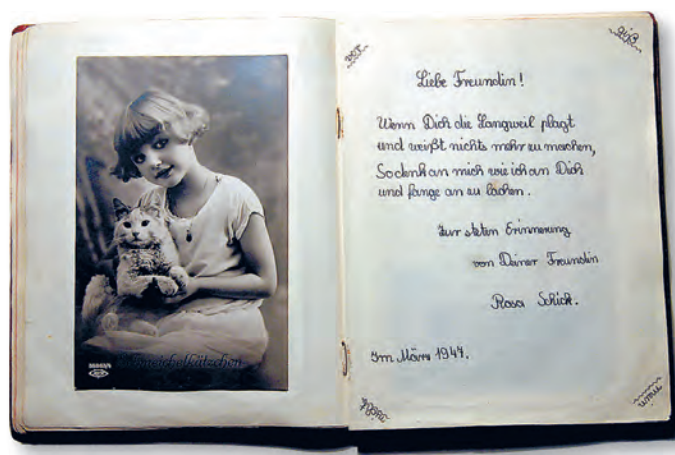 Schmeichelkätzchen
ver
giß
Liebe Freundin!
Wenn Dich die Langweil plagt
und weißt nichts mehr zu machen,
So denk an mich wie ich an Dich
und fange an zu lachen.
Zur steten Erinnerung
von Deiner Freundin
Rosa Schick.
Im März 1947.
nicht
mein